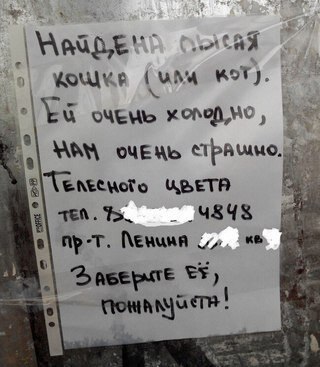 НАЙДЕНА ЛЫСАЯ
КОШКА (ИЛИ КОТ).
ЕЙ ОЧЕНЬ ХОЛОДНО,
НАМ ОЧЕНЬ СТРАШНО.
ТЕЛЕСНОГО ЦВЕТА
ТЕЛ. 8 4848
ПР-Т. ЛЕНИНА КВ
ЗАБЕРИТЕ ЕЁ,
ПОЖАЛУЙСТА!